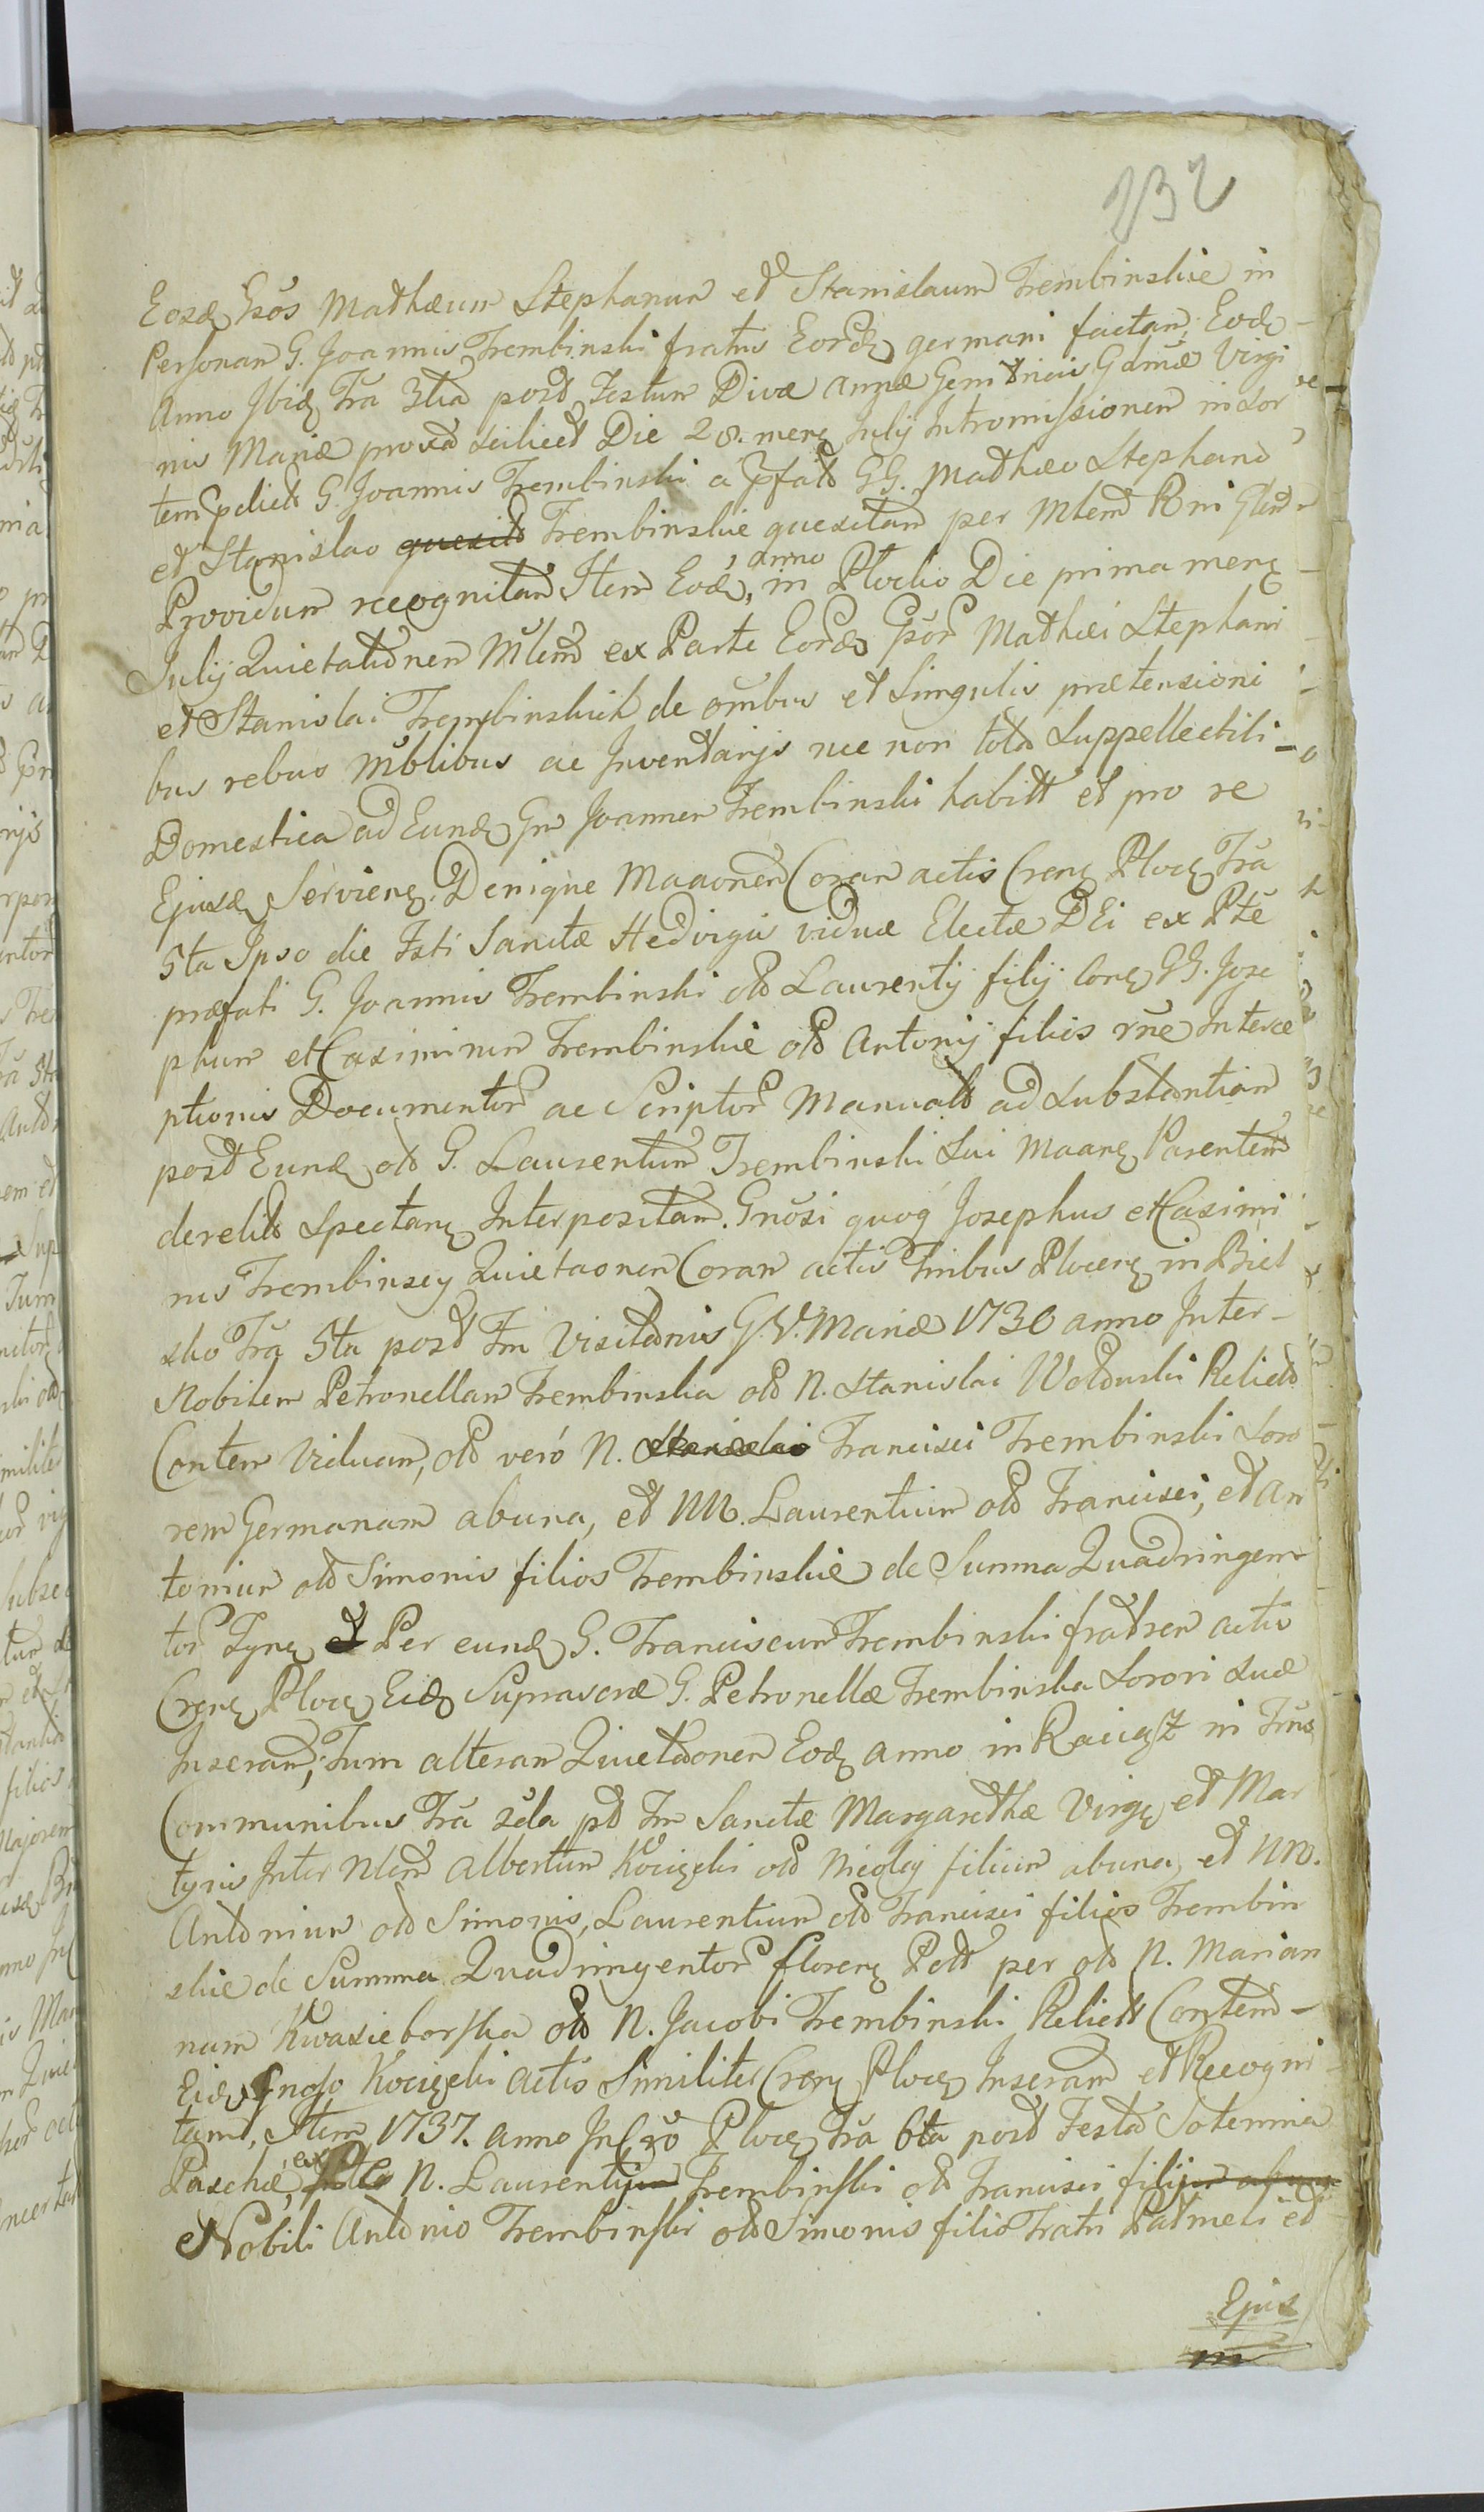 232
Eosd Gsos Mathæum Stephanum et Stanislaum Trembinskie in
Personam G. Joannis Trembinski fratris Eord germani factam, Eod
Anno Ibid Fra 3tia post Festum Divæ Annæ Genitricis Gdnæ Virgi
nis Mariæ proxa scilicet Die 28. mens July Intromissionem in Sor
tem pdicti G. Joannis Trembinski a pfat GG. Mathæo Stephano
et Stanislao quesit Trembinskie quesitam per Mlem Rni Glem
Providum recognitam Item Eod, anno in Plocko Die prima mens
July Quietationem Mlem ex Parte Eord Gsor Mathæi Stephani
et Stanislai Trembinskich de ombus et Singulis prætensioni
bus rebus Mblibus ac Inventarys nec non tota Suppellectili
Domestica ad Eund Gm Joannem Trembinski habitt et pro re
Ejusd Serviens. Denique Maaonem Coram actis Crens Ploc Fra
5ta Ipso die Fsti Sanctæ Hedvigis viduæ Electæ DEi ex Pte
præfati G. Joannis Trembinski old Laurenty fily Cons GG. Jose
phum et Casimirum Trembinskie old Antony filios rne Interce
ptionis Documentor ac Scriptor Manualt ad Substantiam
post Eund old G. Laurentum Trembinski Sui Maans Parentem
derelit Spectans Interpositam. Gnosi quoq Josephus et Casimi
rus Trembinscy Quietaonem Coram actis Tribus Plocens in Biel
sko Fra 5ta post Fm Visitaonis G. V. Mariæ 1730 anno Inter-
Nobilem Petronellam Trembinska old N. Stanislai Wolduski Relict
Contem Viduam, old veró N. Stanislai Francisci Trembinski Soro
rem Germanam abuna, et NN. Laurentium old Francisci, et An
tonium old Simonis filios Trembinskie de Summa Quadringen
tor Fyns et Per eund G. Franciscum Trembinski fratrem actis
Crens Ploc Eid Suprascræ G. Petronellæ Trembinska Sorori Suæ
Inseram, Tum alteram Quietaonem Eod anno in Raciąz in Trns
Communibus Fra 2da pt Fm Sanctæ Margarethæ Virgs et Mar
tyris Inter Nlem Albertum Kocięcki old Nicolaj filium abuna, et NN.
Antonium old Simonis, Laurentium old Francisci filios Trembin
skie de Summa Quadringentor florens Poll per old N. Marian
nam Kwasieborska old N. Jacobi Trembinski Relict Contem-
Eid Gnoso Kocięcki actis Similiter Crens Ploc Inseram et Recogni
tam, Item 1737. anno In Cro Ploc Fra 6ta post Festa Solennia
Paschæ, ex Pte N. Laurentyum Trembinski old Francisci filyum abuna
Nobili Antonio Trembinski old Simonis filio Fratri Patrueli et
Ejus